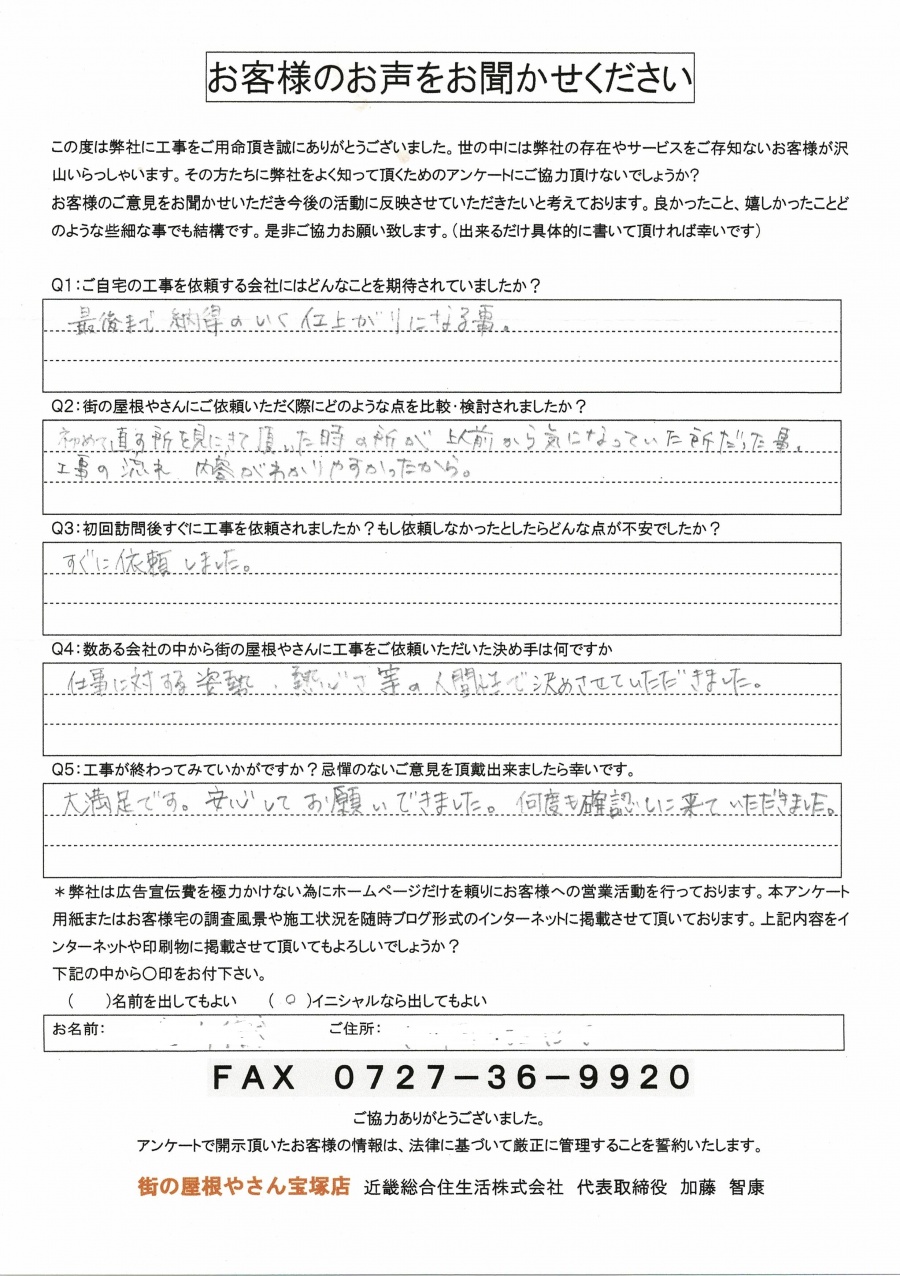 お客様のお声をお聞かせください
この度は弊社に工事をご用命頂き誠にありがとうございました。世の中には弊社の存在やサービスをご存知ないお客様が沢
山いらっしゃいます。その方たちに弊社をよく知って頂くためのアンケートにご協力頂けないでしょうか？
お客様のご意見をお聞かせいただき今後の活動に反映させていただきたいと考えております。良かったこと、嬉しかったことど
のような些細な事でも結構です。是非ご協力お願い致します。（出来るだけ具体的に書いて頂ければ幸いです）
Q1：ご自宅の工事を依頼する会社にはどんなことを期待されていましたか？
最後まで 納得のいく 仕上がりになる事。
Q2：街の屋根やさんにご依頼いただく際にどのような点を比較・検討されましたか？
初めて直す所を見にきて頂いた時の所が 以前から気になっていた所だった事。
工事の流れ、内容がわかりやすかったから。
Q3：初回訪問後すぐに工事を依頼されましたか？もし依頼しなかったとしたらどんな点が不安でしたか？
すぐに依頼しました。
Q4：数ある会社の中から街の屋根やさんに工事をご依頼いただいた決め手は何ですか
仕事に対する姿勢、熱心さ等の人間性で決めさせていただきました。
Q5：工事が終わってみていかがですか？忌憚のないご意見を頂戴出来ましたら幸いです。
大満足です。安心してお願いできました。何度も確認しに来ていただきました。
＊弊社は広告宣伝費を極力かけない為にホームページだけを頼りにお客様への営業活動を行っております。本アンケート
用紙またはお客様宅の調査風景や施工状況を随時ブログ形式のインターネットに掲載させて頂いております。上記内容をイ
ンターネットや印刷物に掲載させて頂いてもよろしいでしょうか？
下記の中から〇印をお付下さい。
（　　）名前を出してもよい　（ ○ ）イニシャルなら出してもよい
お名前：　ご住所：
ＦＡＸ　０７２７－３６－９９２０
ご協力ありがとうございました。
アンケートで開示頂いたお客様の情報は、法律に基づいて厳正に管理することを誓約いたします。
街の屋根やさん宝塚店　近畿総合住生活株式会社　代表取締役　加藤　智康